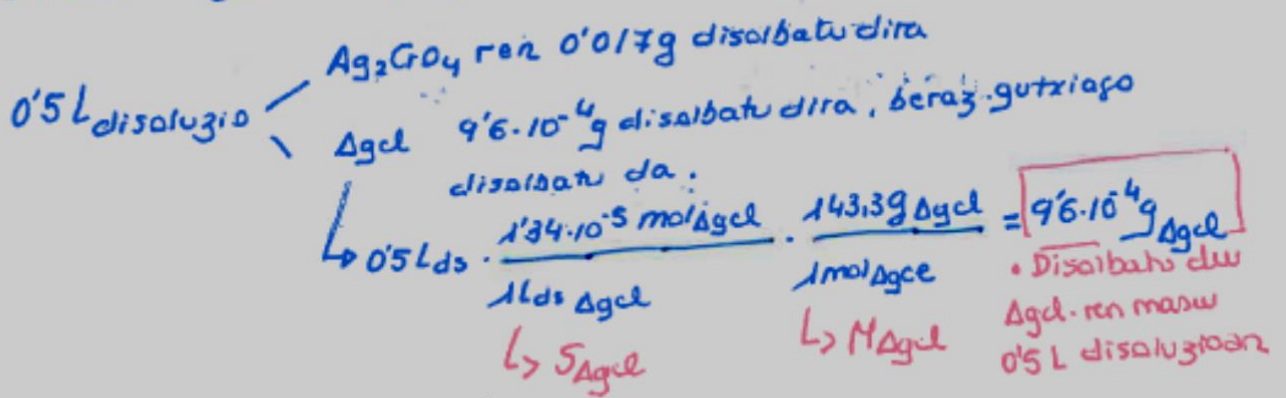 Ag₂CrO₄ ren 0'017g disolbatu dira
0'5 L disoluzio
AgCl 9'6·10⁻⁴g disolbatu dira, beraz gutxiago
disolbatu da.
0'5 L ds · 1'34·10⁻⁵ mol AgCl / 1 L ds AgCl · 143,3g AgCl / 1 mol AgCl = 9'6·10⁻⁴ g AgCl
↳ S AgCl
↳ M AgCl
• Disolbatu du
AgCl-ren masu
0'5 L disoluzioan